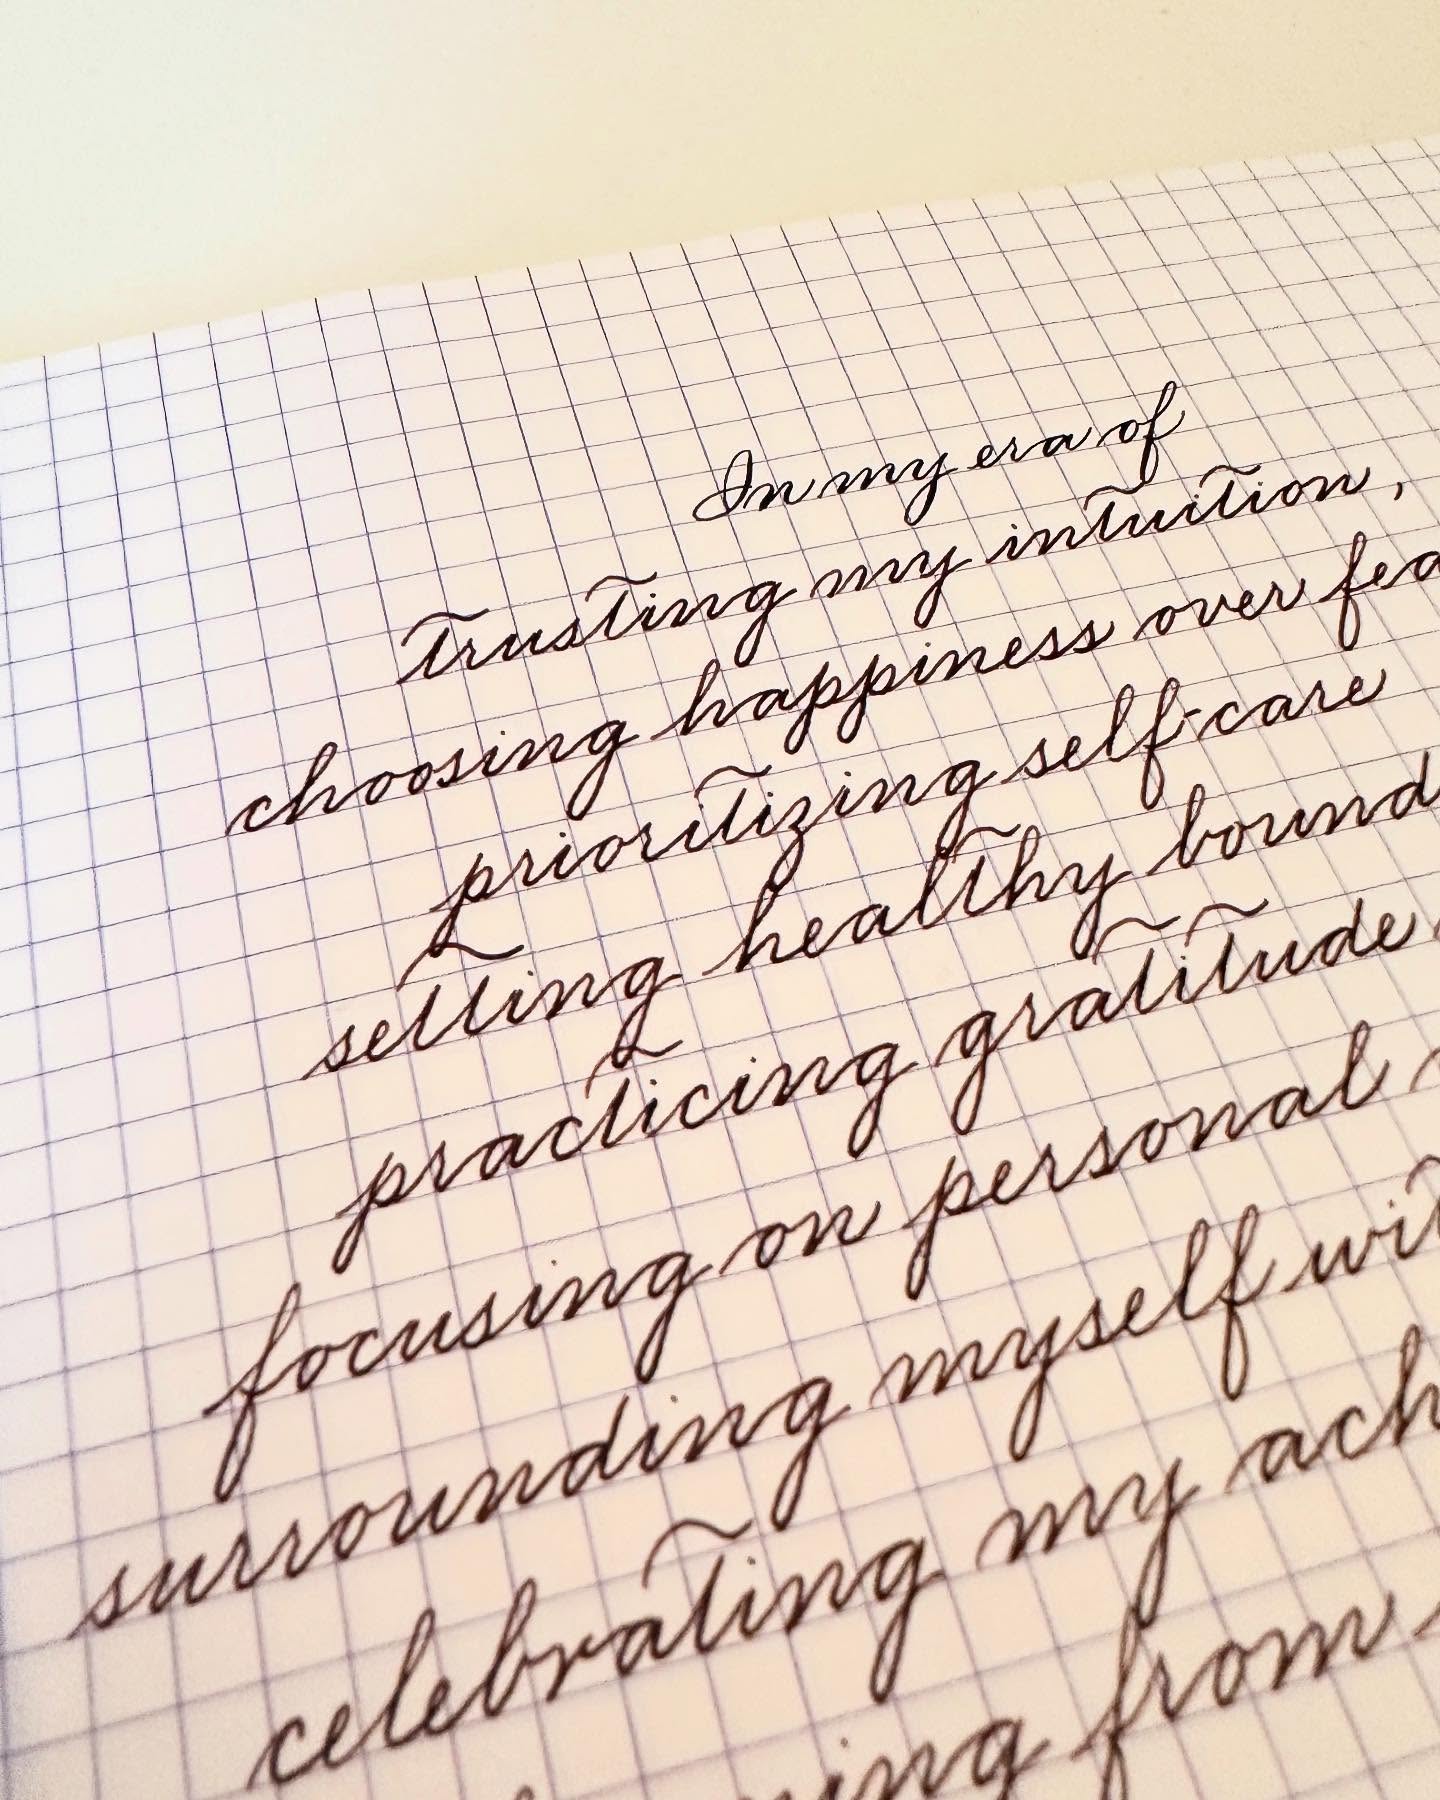 In my era of
Trusting my intuition,
choosing happiness over
prioritizing self-care
setting healthy
practicing gratitude
focusing on personal
surrounding myself
celebrating my
from